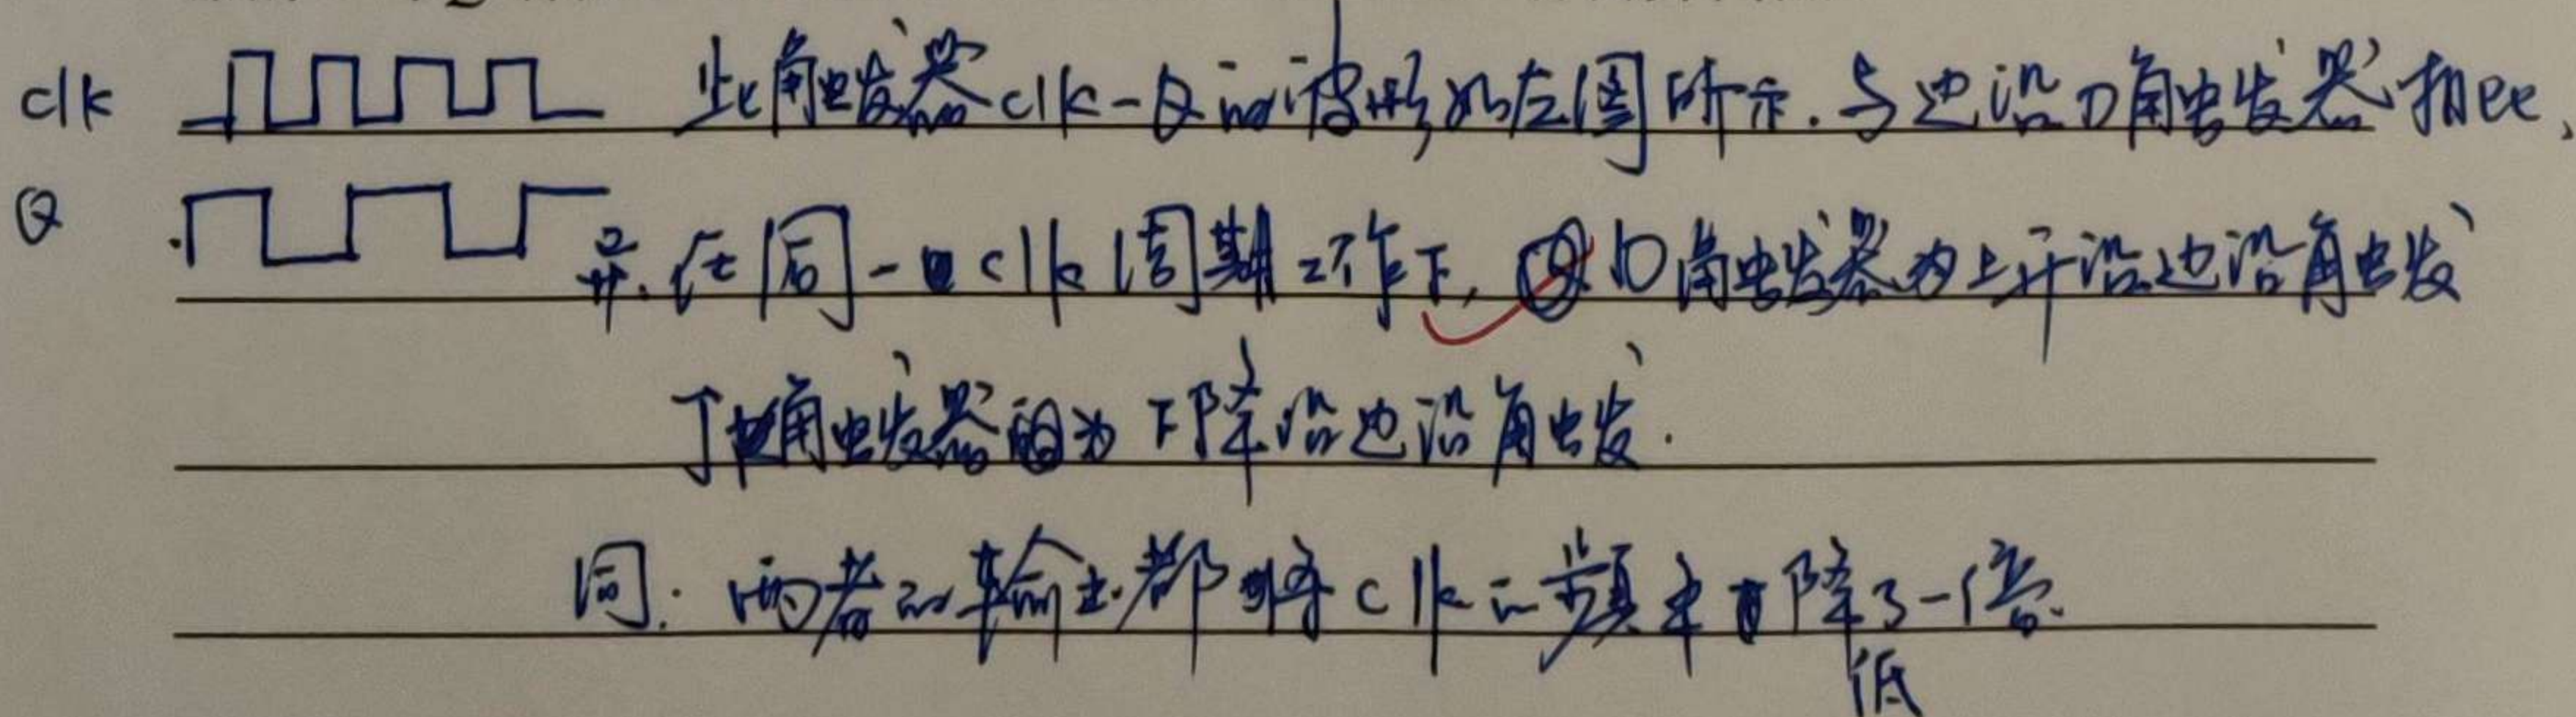 clk 此触发器clk-Q的波形如左图所示.与边沿D触发器相比,
Q 异.在同一clk周期工作下, D触发器为上升沿边沿触发
T触发器为下降沿边沿触发.
同.两者的输出都将clk的频率降低了一倍.